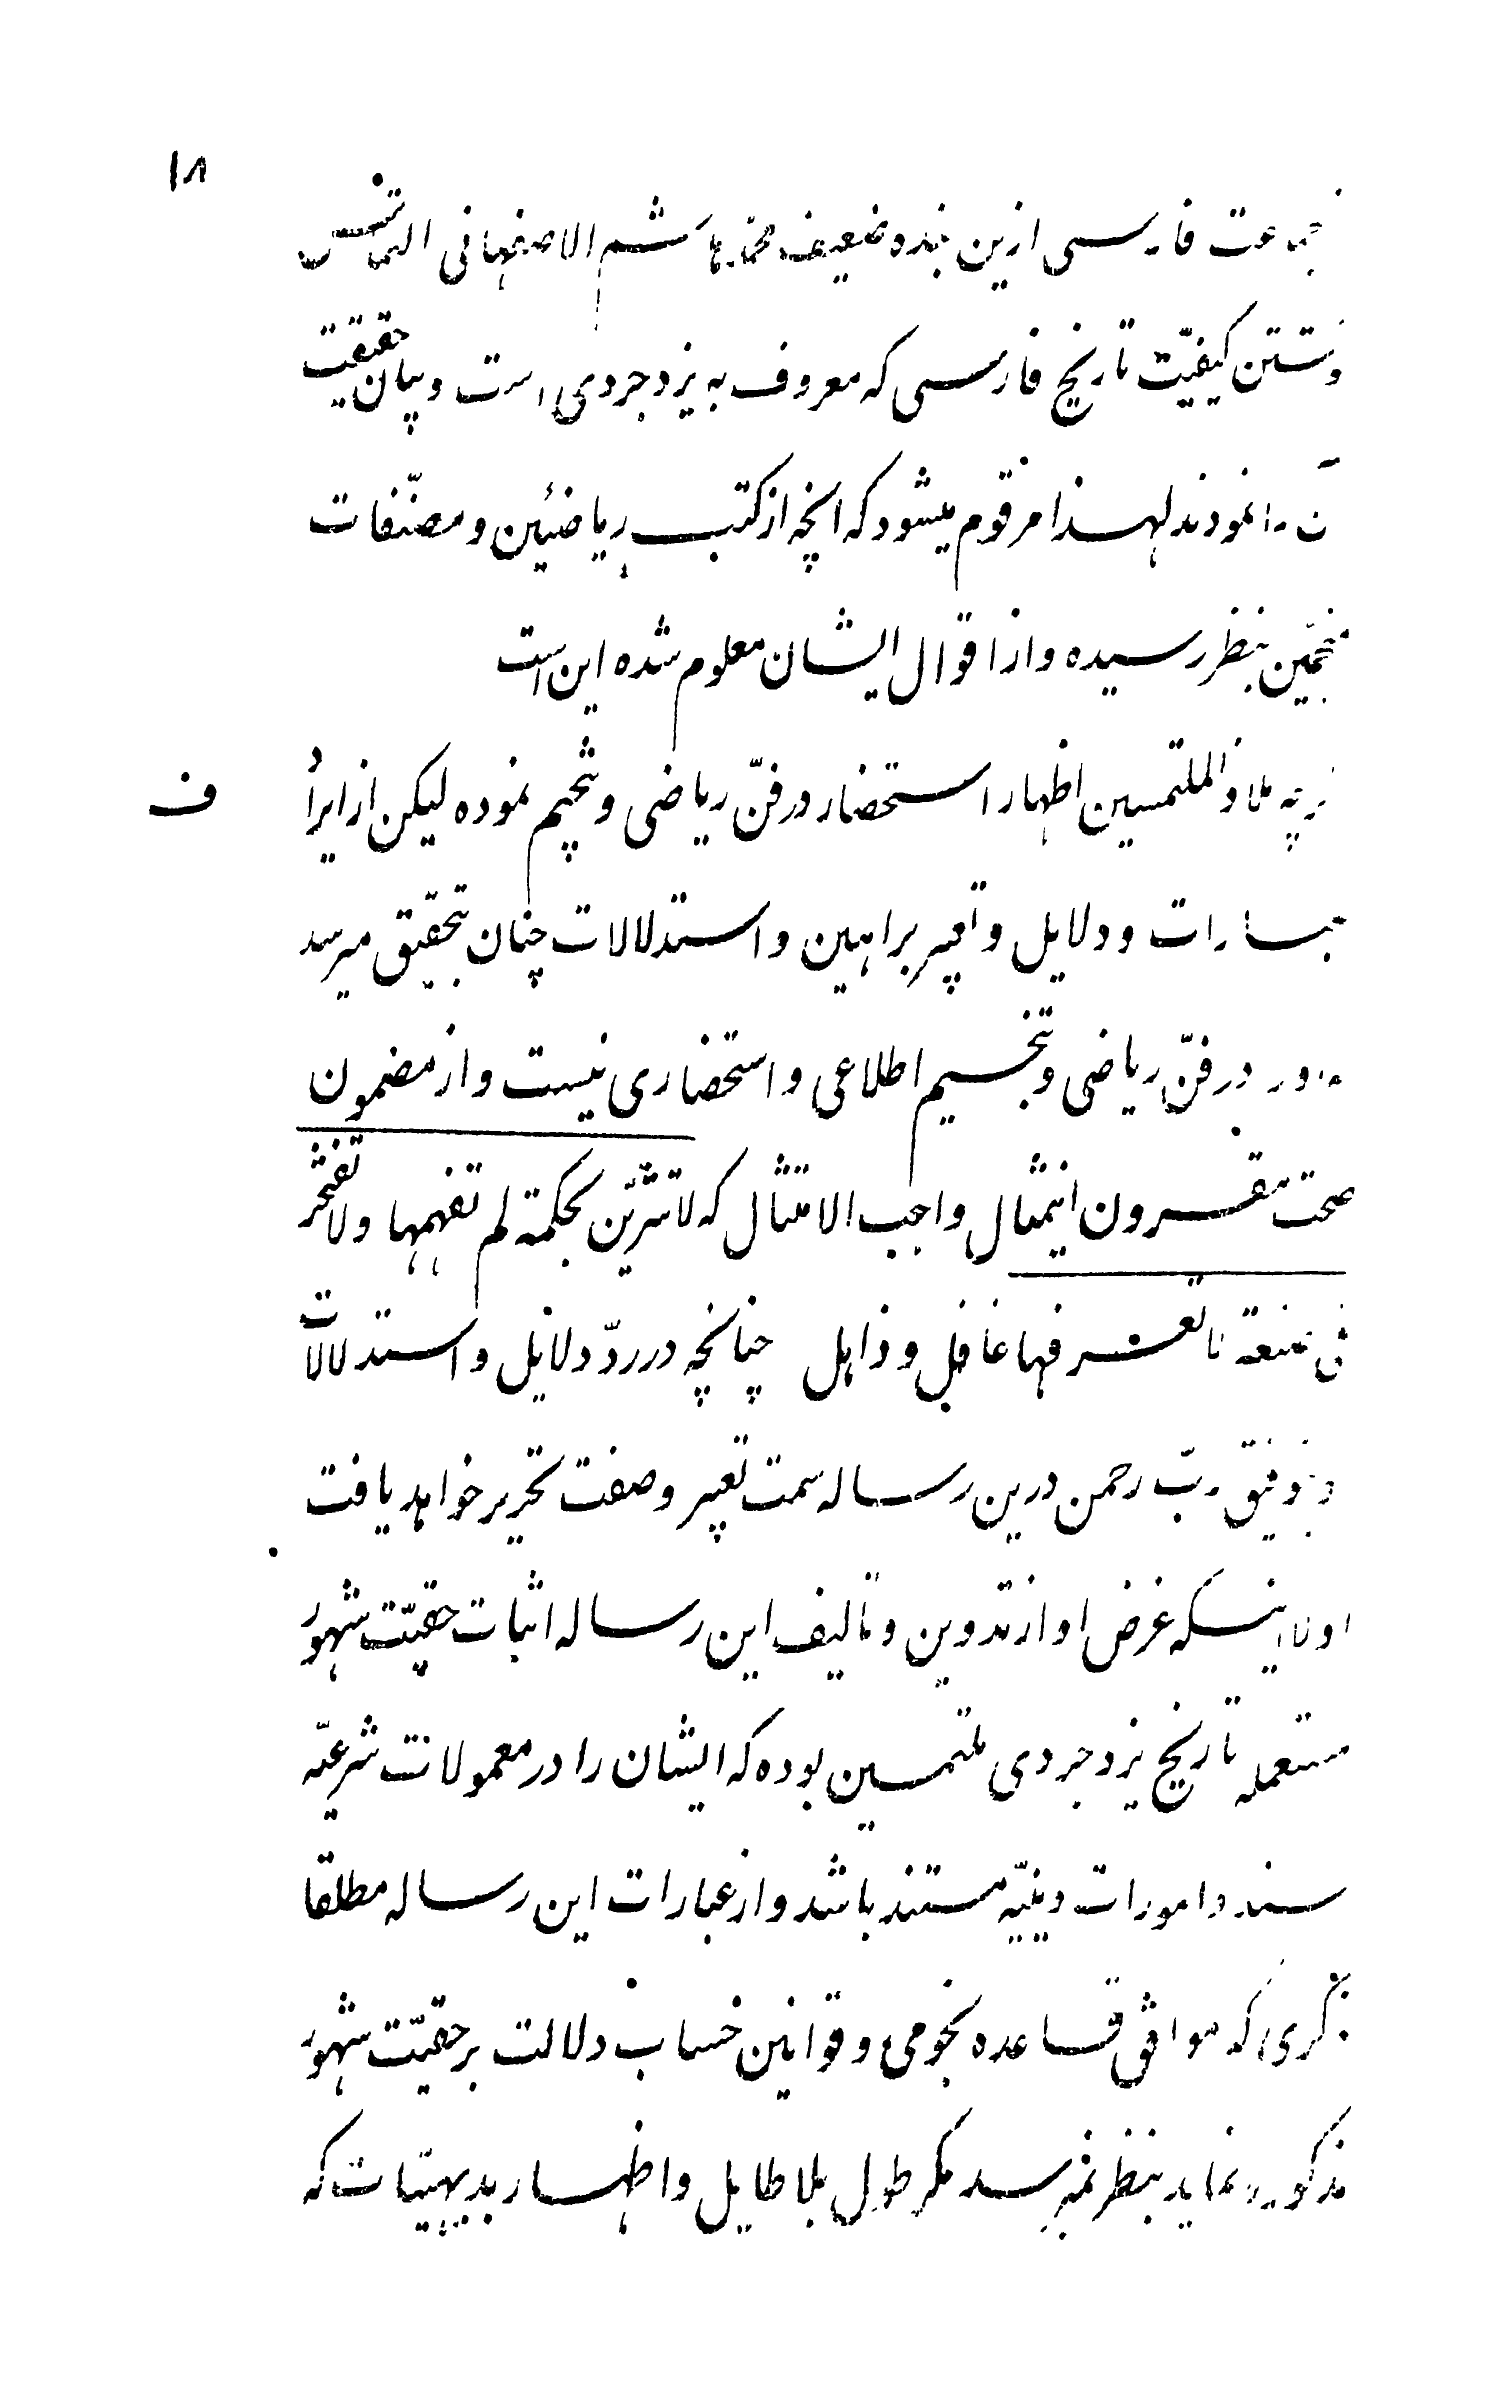 ۱۸
جماعت فارسی ازین بنده ضعیف محمّد هاشم الاصفهانی التماس
نوشتن کیفیّت تاریخ فارسی که معروف به یزدجردی است و بیان حقیقت
آن را نمودند لهذا مرقوم میشود که انچه از کتب ریاضئین و مصنّفات
منجّمین بنظر رسیده و از اقوال ایشان معلوم شده این است
ملاذ الملتمسین اظهار استحضار در فنّ ریاضی و تنجیم نموده لیکن از ایراد
ف
عبارات و دلایل و تعبیر براهین و استدلالات چنان بتحقیق میرسد
در فنّ ریاضی و تنجیم اطلاعی و استحضاری نیست و از مضمون
صحت مقرون اینمثال واجب الامتثال که لا تتزیّن بحکمة لم تفهمها ولا تفتخر
غافل و ذاهل چنانچه در ردّ دلایل و استدلالات
بتوفیق ربّ رحمن درین رساله سمت تعبیر و صفت تحریر خواهد یافت
اولا اینکه غرض او از تدوین و تالیف این رساله اثبات حقیّت شهور
مستعمله تاریخ یزدجردی ملتمسین بوده که ایشان را در معمولات شرعیّه
سند و امورات دینیّه مستند باشد و از عبارات این رساله مطلقا
که موافق قاعده نجومی و قوانین حساب دلالت بر حقیّت شهور
مذکوره نماید بنظر نمیرسد مگر طول بلا طایل و اظهار بدیهیّات که